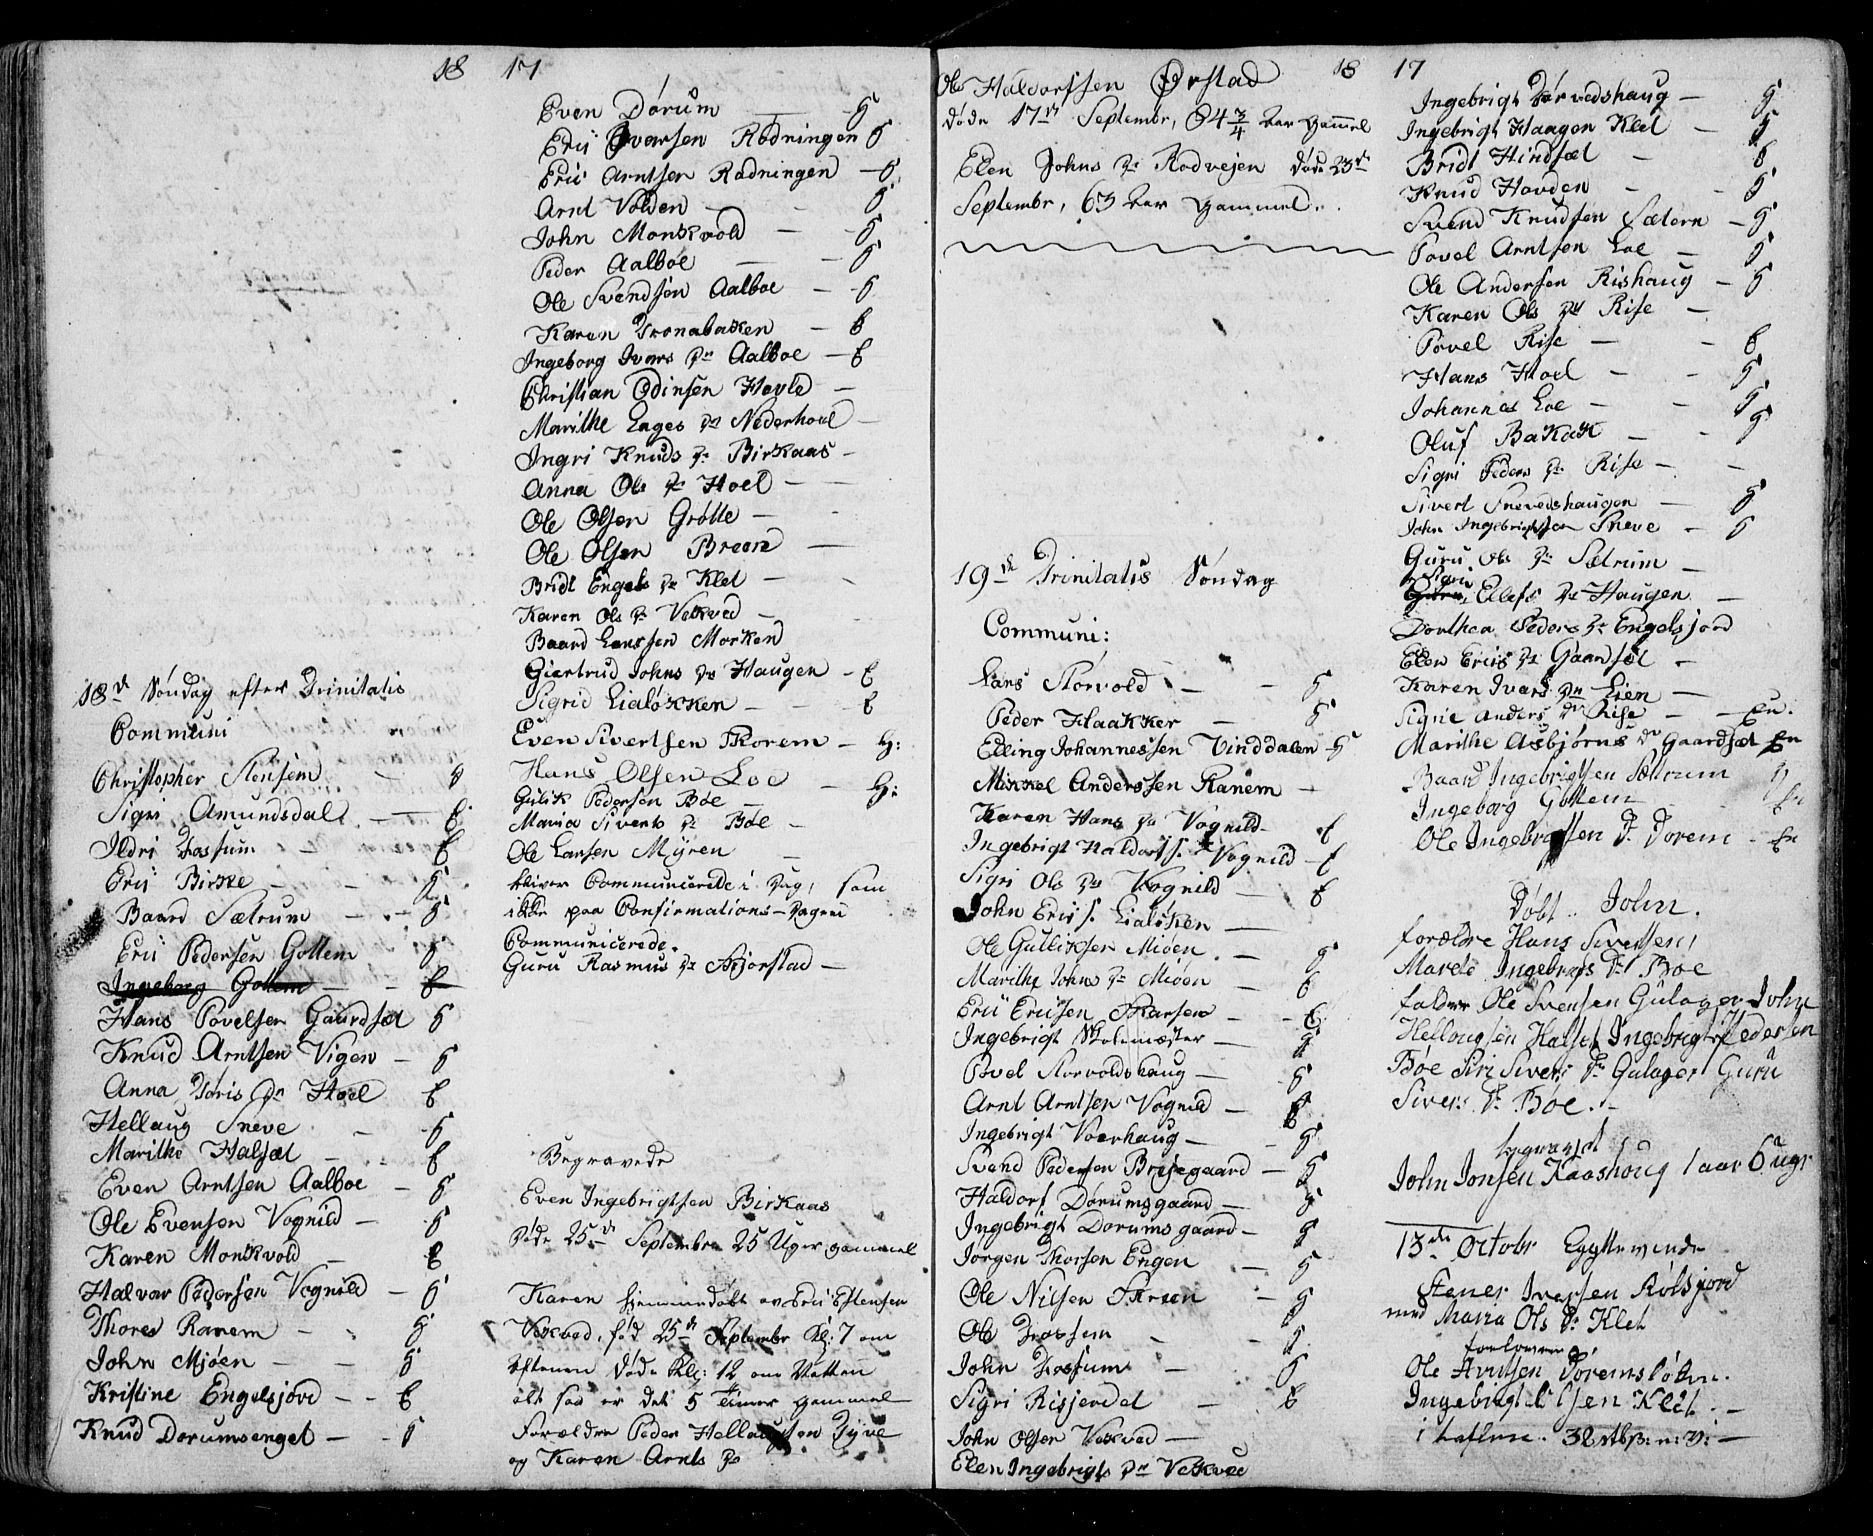 18 17
18d Søndag efter Trinitatis
Communi
Christopher Stensem - g
Sigri Amundsdal - E
Ildri Fossum - E
Erii Birke - g
Baard Sætrum - g
Erii Pedersen Gottem g
Ingeborg Gottem - E
Hans Povelsen Gaardsæt g
Knud Arntsen Vigen - g
Anna Joris Dr Hoel E
Hellaug Sneve - g
Marithe Halsæt - E
Even Arntsen Aalboe - g
Ole Evensen Vognild - g
Karen Monkvold - E
Halvar Pedersen Vognild - g
Thores Ranem - g
John Mjøen - g
Kristine Engelsjord - E
Knud Dorumsenget - g
Even Dørum - g
Erii Ivarsen Rødningen g
Erii Arntsen Rødningen - g
Arnt Volden - g
John Monkvold - g
Peder Aalboe - g
Ole Svendsen Aalboe - g
Karen Tronabakken - E
Ingeborg Ivars Dr Aalboe - E
Christian Odinsen Hovle -
Marithe Enges Dr Nederhoel -
Ingri Knuds Dr Birkaas -
Anna Ols Dr Hoel -
Ole Olsen Grøtte -
Ole Olsen Breen -
Bridt Engels Dr Klet -
Karen Ols Dr Vekved -
Baard Larssen Morken
Giertrud Johns Dr Haugen - E
Sigrid Lialøkken - E
Even Sivertsen Thorem - H:
Hans Olsen Loe - H:
Gulik Pedersen Bøe -
Maria Siverts Dr Bøe -
Ole Larsen Myren -
bliver Communicerede i Dag, som
ikke paa Confirmations-Dagen
Communicerede.
Guru Rasmus Dr Stjørstad -
Begravede
Even Ingebrigtsen Birkaas
Døde 25de Septembr 25 Uger gammel
Karen hjemmedøbt av Erii Estensen
Vekved, fød 25de Septembr Kl: 7 om
Aftenen døde Kl: 12 om Natten
alt saa er det 5 Timer gammel
Forældre Peder Hellaugsen
og Karen Arnts Dr
18 17
Ole Haldorssen Ørstad
døde 17de Septembr, 84 3/4 Aar gammel
Elen Johns Dr Rodvejen døde 23de
Septembr, 63 Aar gammel.
19de Trinitatis Søndag
Communi:
Lars Storvold - g
Peder Haakker - g
Elling Johannessen Vinddalen - g
Mikkel Anderssen Ranem -
Karen Hans Dr Vognild - E
Ingebrigt Haldorss. Vognild - E
Sigri Ols Dr Vognild - E
John Eriis. Lialøken -
Ole Gulliksen Miøen - g
Marithe Johns Dr Miøen - E
Erii Eriisen - E
Ingebrigt Skolemester - g
Povel Storvoldshaug - g
Arnt Arntsen Vognild - g
Ingebrigt Voerhaug - g
Svend Pedersen Brejegaard - g
Haldorf Dørumsgaard - g
Ingebrigt Dorumsgaard - g
Jørgen Thorsen Engen - g
Ole Nilsen Skreen - g
Ole Fossem - g
John Fossum - g
Sigri Risjerdet - E
John Olsen Vekved -
Elen Ingebrigts Dr Vekved
Ingebrigt Torvedshaug - g
Ingebrigt Haagen Klet - g
Bridt Hindsæt - E
Knud Hovden - g
Svend Knudsen Sætern - g
Povel Arntsen Loe - g
Ole Andersen Rishaug - g
Karen Ols Dr Rise -
Povel Rise - E
Hans Hoel - g
Johannes Loe - g
Oluf Bakak - g
Sigri Peders Dr Rise -
Sivert Snevedshaugen - g
John Ingebrigtsen Sneve - g
Guru Ols Dr Sætrum -
Sigri
Guru, Ellefs Dr Haugen -
Dorthea Peders Dr Engelsjord
Elen Eriis Dr Gaardsæt -
Karen Ivars Dr Lien -
Signe Anders Dr Rise - En.
Marithe Asbjørns Dr Gaardsæt En
Baard Ingebrigtsen Sættrum
Ingeborg Gottem En
Ole Ingebrigtsen Dorem - En
Døbt .. John.
forældre Hans Sivertsen,
Marete Ingebrigs Dr Boe
faddre Ole Svensen Gulager John
Hellougsen Halset Ingebrigt Pedersen
Bøe Siri Sivers Dr Gulager Guru
Sivers Dr Boe. -
begravet
John Jonsen Kaashoug 1 aar 6 ugr
13de Octobr Egtteviede
Stener Iversen Rølsjord
med Maria Ols Dr Klet
forlovere
Ole Døremsløkn.
Ingebrigt Olsen Klet. -